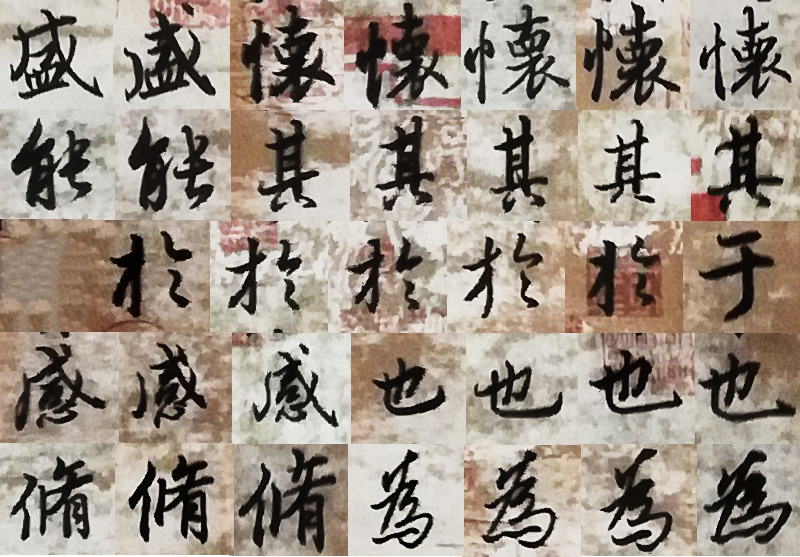 盛盛懷懷懷懷懷
能能其其其其其
於於於於於于
感感感也也也也
脩脩脩為為為為